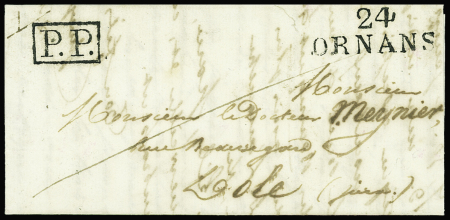 P.P.
24
ORNANS
Monsieur
Monsieur le Docteur Meynier,
rue Beauregard,
Dole (jura.)